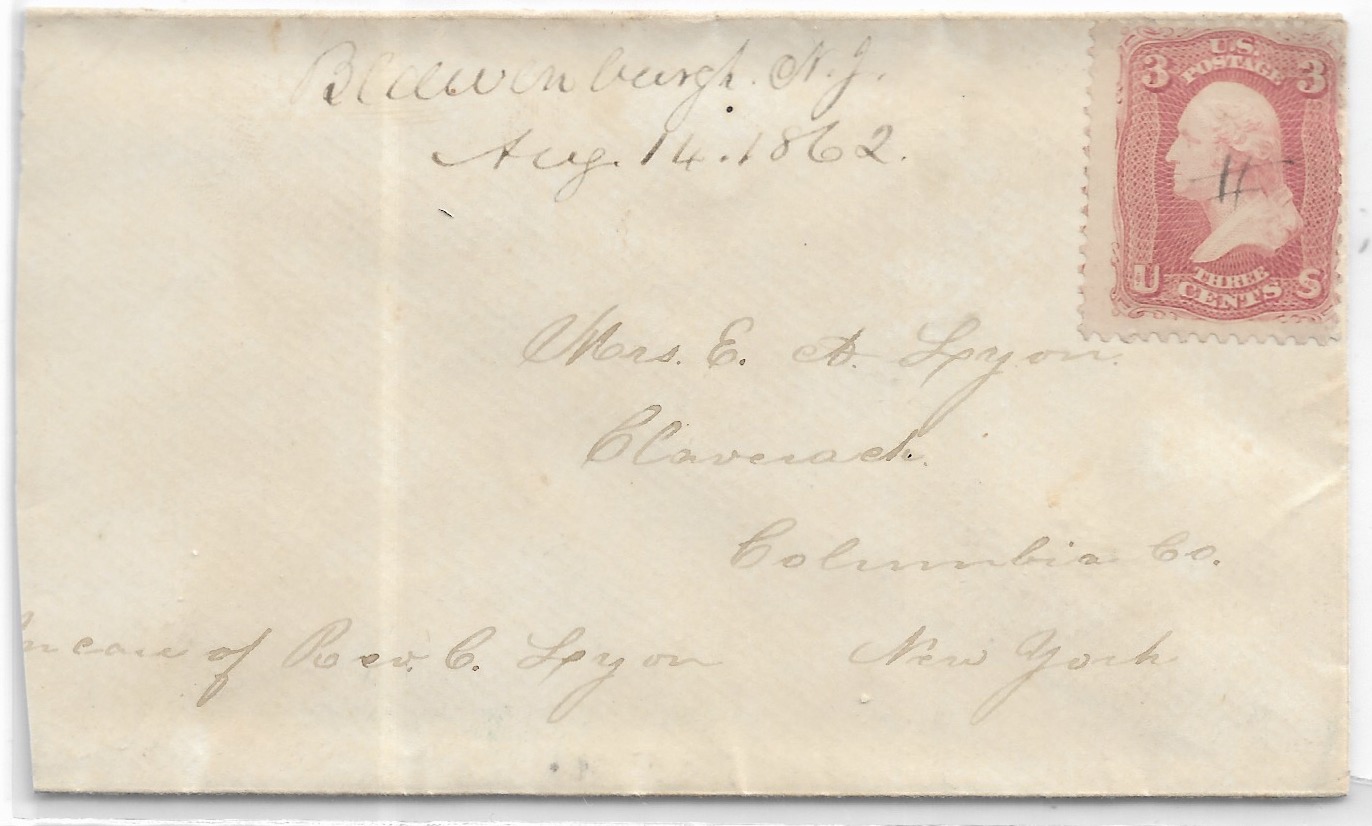 Blawenburgh. N.J.
Aug. 14. 1862.
U.S.
POSTAGE
3 3
THREE
CENTS
U S
Mrs. E. A. Lyon.
Claverack.
Columbia Co.
New York
In care of Rev. C. Lyon